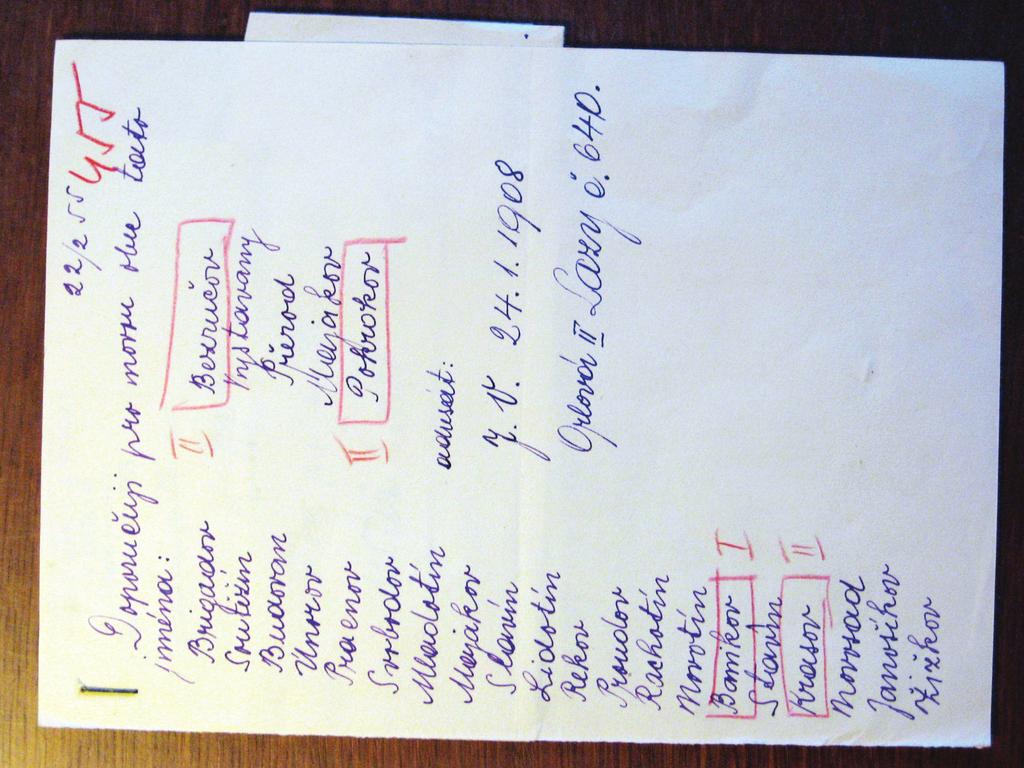 22/2 55
455
Doporučuji pro novou obec tato
jména:
Brigadov
Soutěžín
Budovan
Únorov
Pracenov
Svobodov
Mladotín
Majakov
Slavín
Lidotín
Rekov
Proudov
Rachotín
Novotín
Baníkov I
Slavín
Krasov II
Novosad
Janošíkov
Žižkov
II Bezručov
Vystavany
Přerod
Majákov
II Pokrokov
adresát:
J. V. 24.1.1908
Orlová II Lazy č. 640.